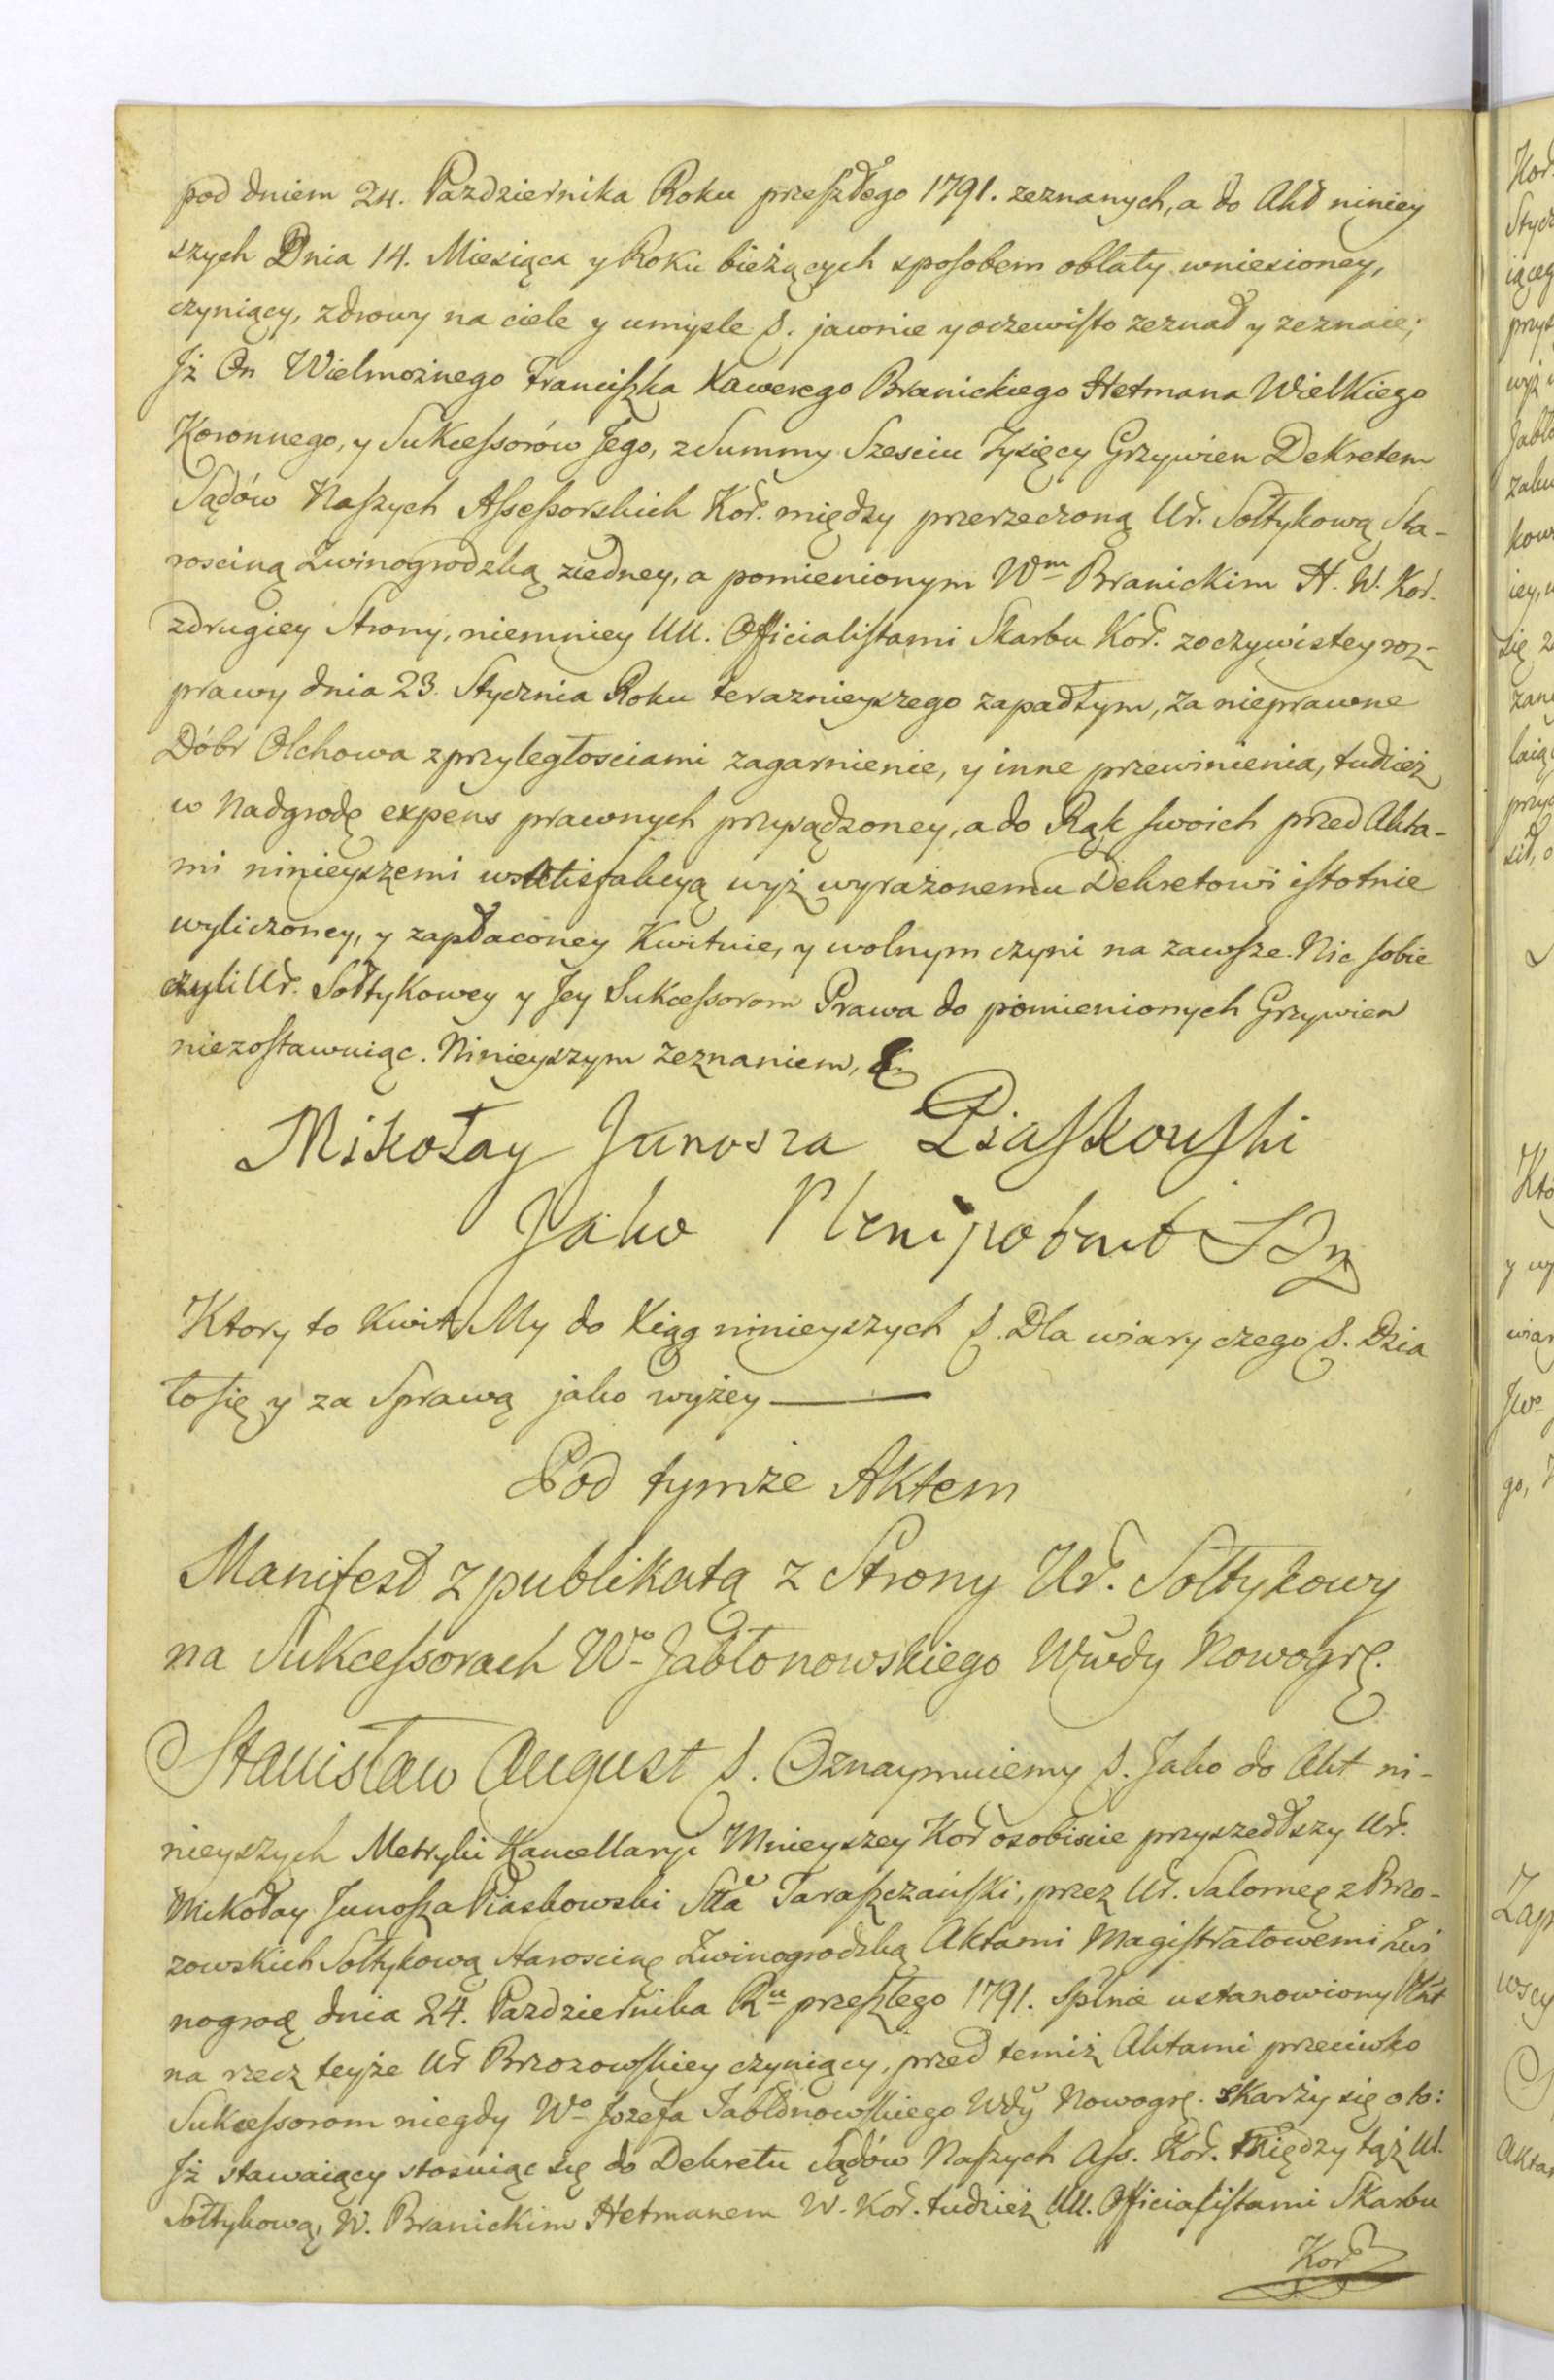 pod dniem 24. Pazdziernika Roku przeszłego 1791. zeznanych, a do Akt niniey
szych Dnia 14. Miesiąca y Roku bieżących sposobem oblaty wniesioney,
czyniący, zdrowy na ciele y umysle &. jawnie y oczewisto zeznał y zeznaie;
Jż On Wielmożnego Franciszka Xawerego Branickiego Hetmana Wielkiego
Koronnego, y Sukcessorów Jego, z Summy Szesciu Tysięcy Grzywien Dekretem
Sądów Naszych Assessorskich Kor. między przerzeczoną Ur. Sołtykową Sta-
rosciną Zwinogrodzką ziedney, a pomienionym Wm Branickim H. W. Kor.
zdrugiey Strony, niemniey UU. Officialistami Skarbu Kor. zoczywistey roz-
prawy dnia 23. Stycznia Roku teraznieyszego zapadłym, za nieprawne
Dóbr Olchowa z przyległosciami zagarnienie, y inne przewinienia, tudzież
w Nadgrodę expens prawnych przysądzoney, a do Rąk swoich przed Akta-
mi ninieyszemi w satisfakcyą wyż wyrażonemu Dekretowi istotnie
wyliczoney, y zapłaconey Kwituie, y wolnym czyni na zawsze. Nic sobie
czyli Ur. Sołtykowey y Jey Sukcessorom Prawa do pomienionych Grzywien
niezostawuiąc. Ninieyszym zeznaniem, &.
Mikołay Junosza Piaskowski
Jako Plenipotent
Ktory to Kwit My do Xiąg ninieyszych &. Dla wiary czego &. Dzia
ło się y za Sprawą jako wyżey
Pod tymże Aktem
Manifest z publikatą z Strony Ur. Sołtykowy
na Sukcessorach Wo Jabłonowskiego Wwdy Nowogrę.
Stanisław August &. Oznaymuiemy &. Jako do Akt ni-
nieyszych Metryki Kancellaryi Mnieyszey Kor osobiscie przyszedłszy Ur.
Mikołay Junosza Piaskowski Stta Taraszczański, przez Ur. Salomeę z Brzo-
zowskich Sołtykową Staroscinę Zwinogrodzką Aktami Magistratowemi Zwi
nogrodę dnia 24. Pazdziernika Ru przeszłego 1791. Splnie ustanowiony Plnt
na rzecz teyże Ur Brzozowskiey czyniący, przed temiż Aktami przeciwko
Sukcessorom niegdy Wo Jozefa Jabłonowskiego Wdy Nowogrę. skarży się o to:
Jż stawaiący stosuiąc się do Dekretu Sądów Naszych Ass. Kor. Między tąż Ur.
Sołtykową, W. Branickim Hetmanem W. Kor. tudzież UU. Officialistami Skarbu
Kor